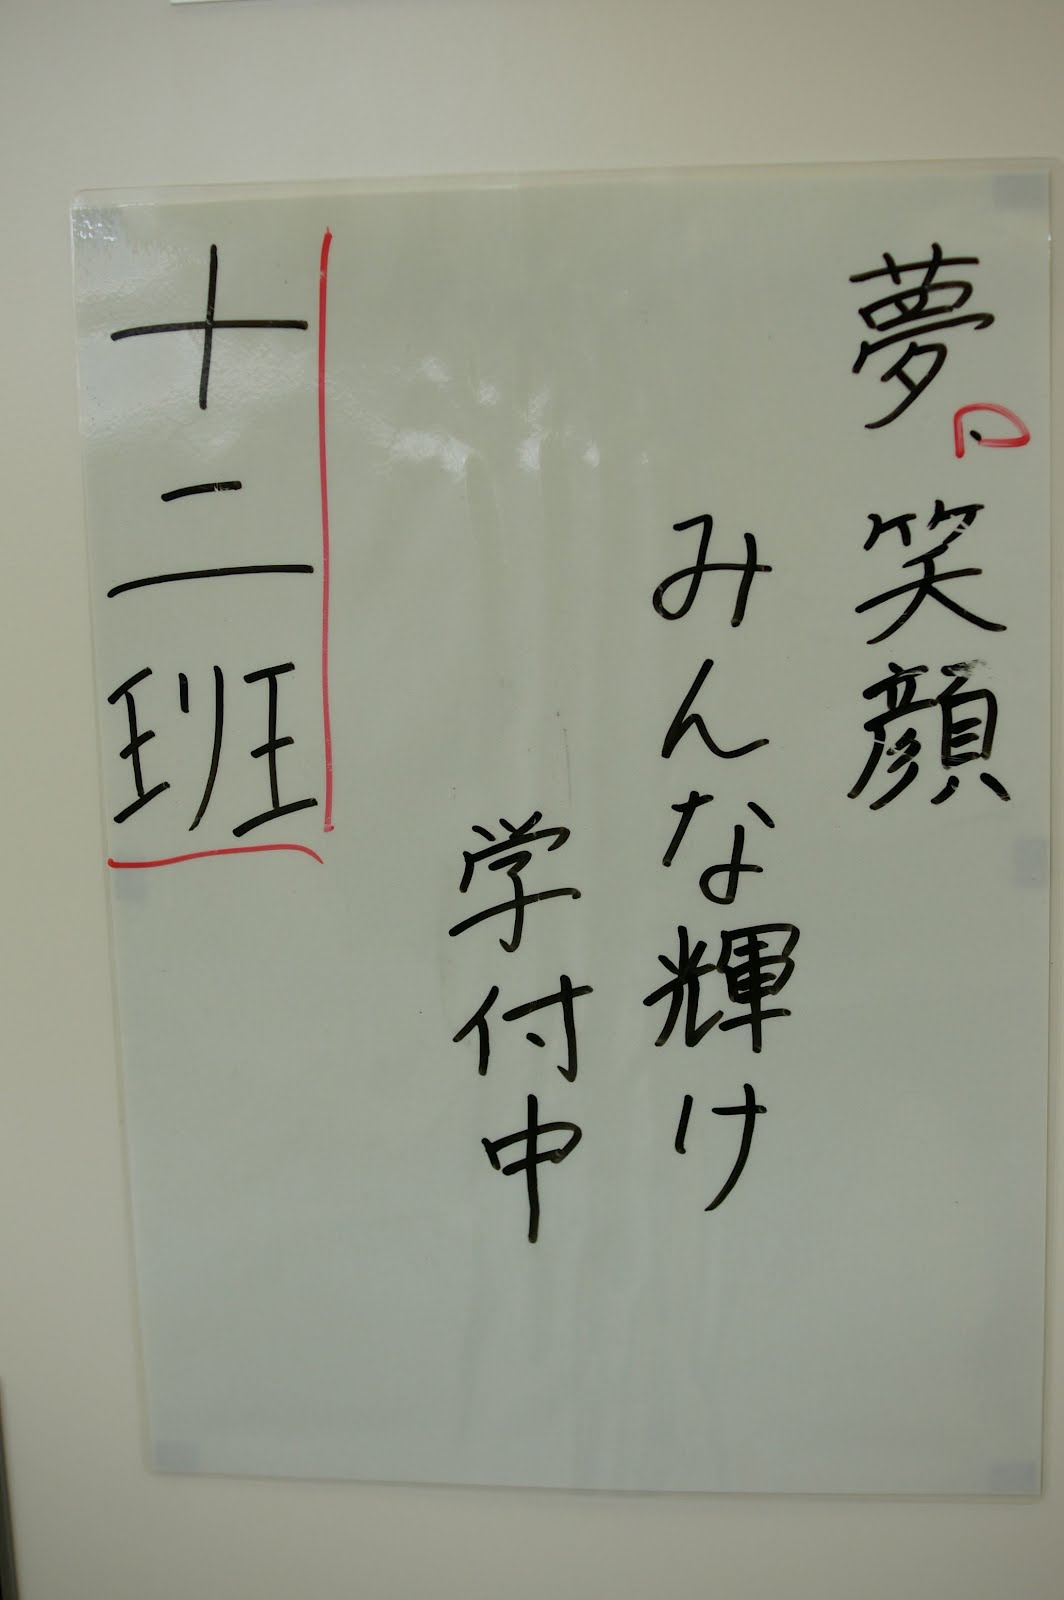 夢、笑顔
みんな輝け
学付中
十二班